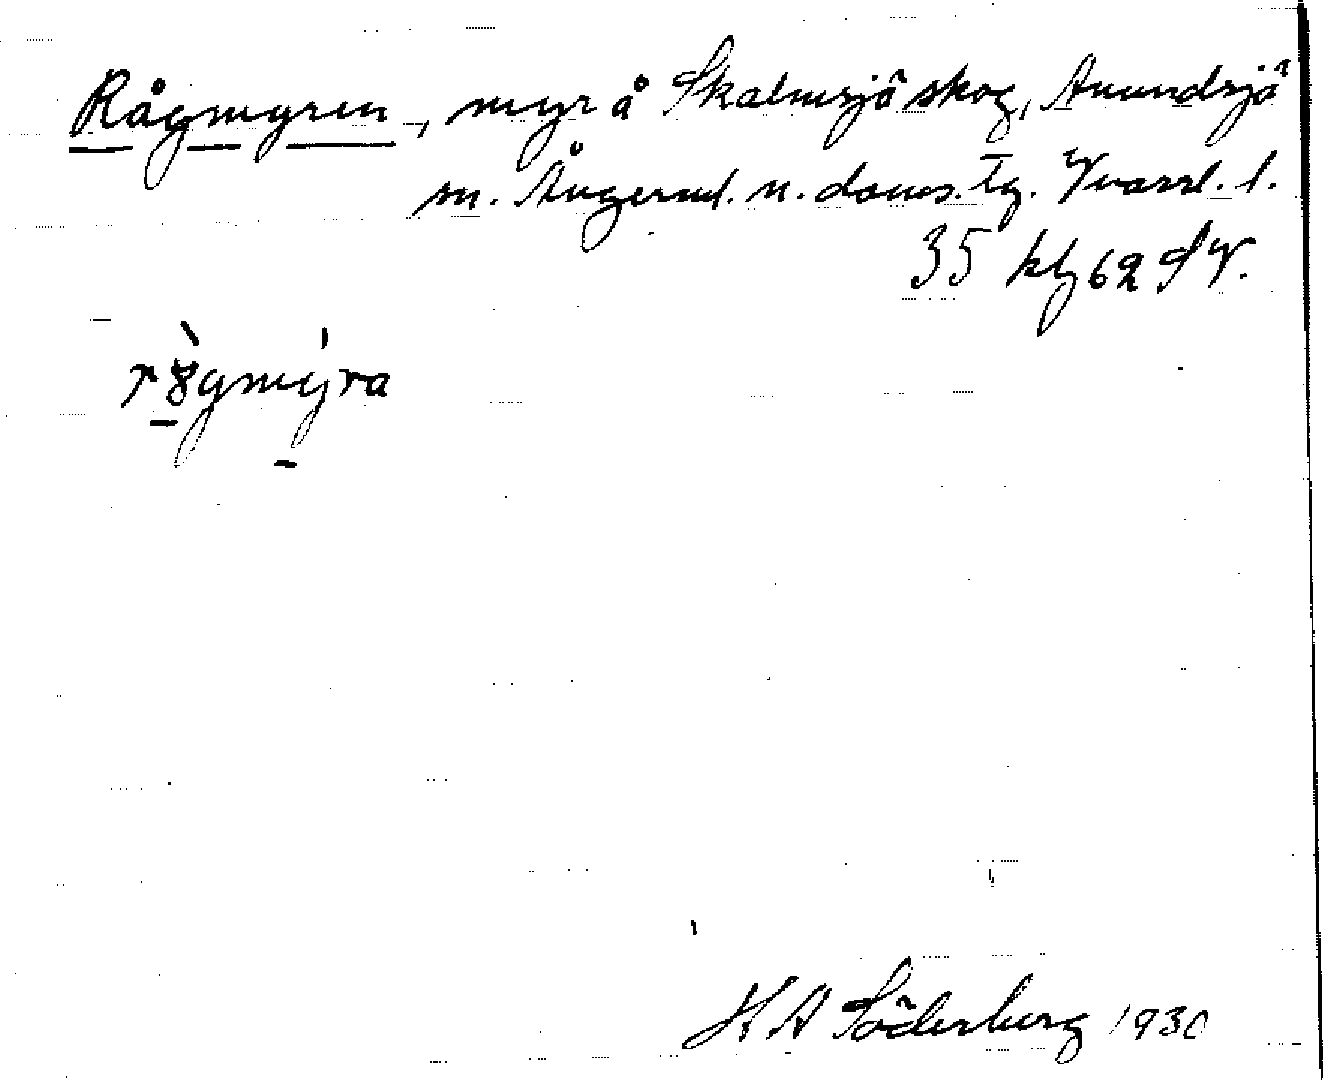 Rågmyren, myr å Skalmsjö skog, Anundsjö
sn. Ångerml. n. doms. Tg. Kvarrl. l.
35 kbg 62 SV.
rågmyra
H A Söderberg 1930